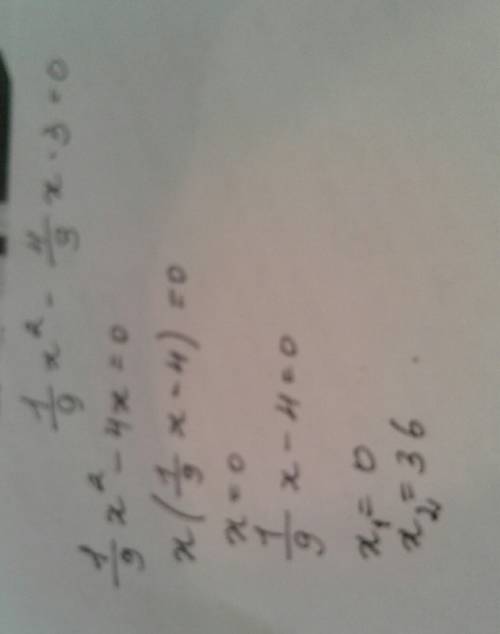 1/9 x² - 4/9 x · 3 = 0
1/9 x² - 4x = 0
x (1/9 x - 4) = 0
x = 0
1/9 x - 4 = 0
x₁ = 0
x₂ = 36